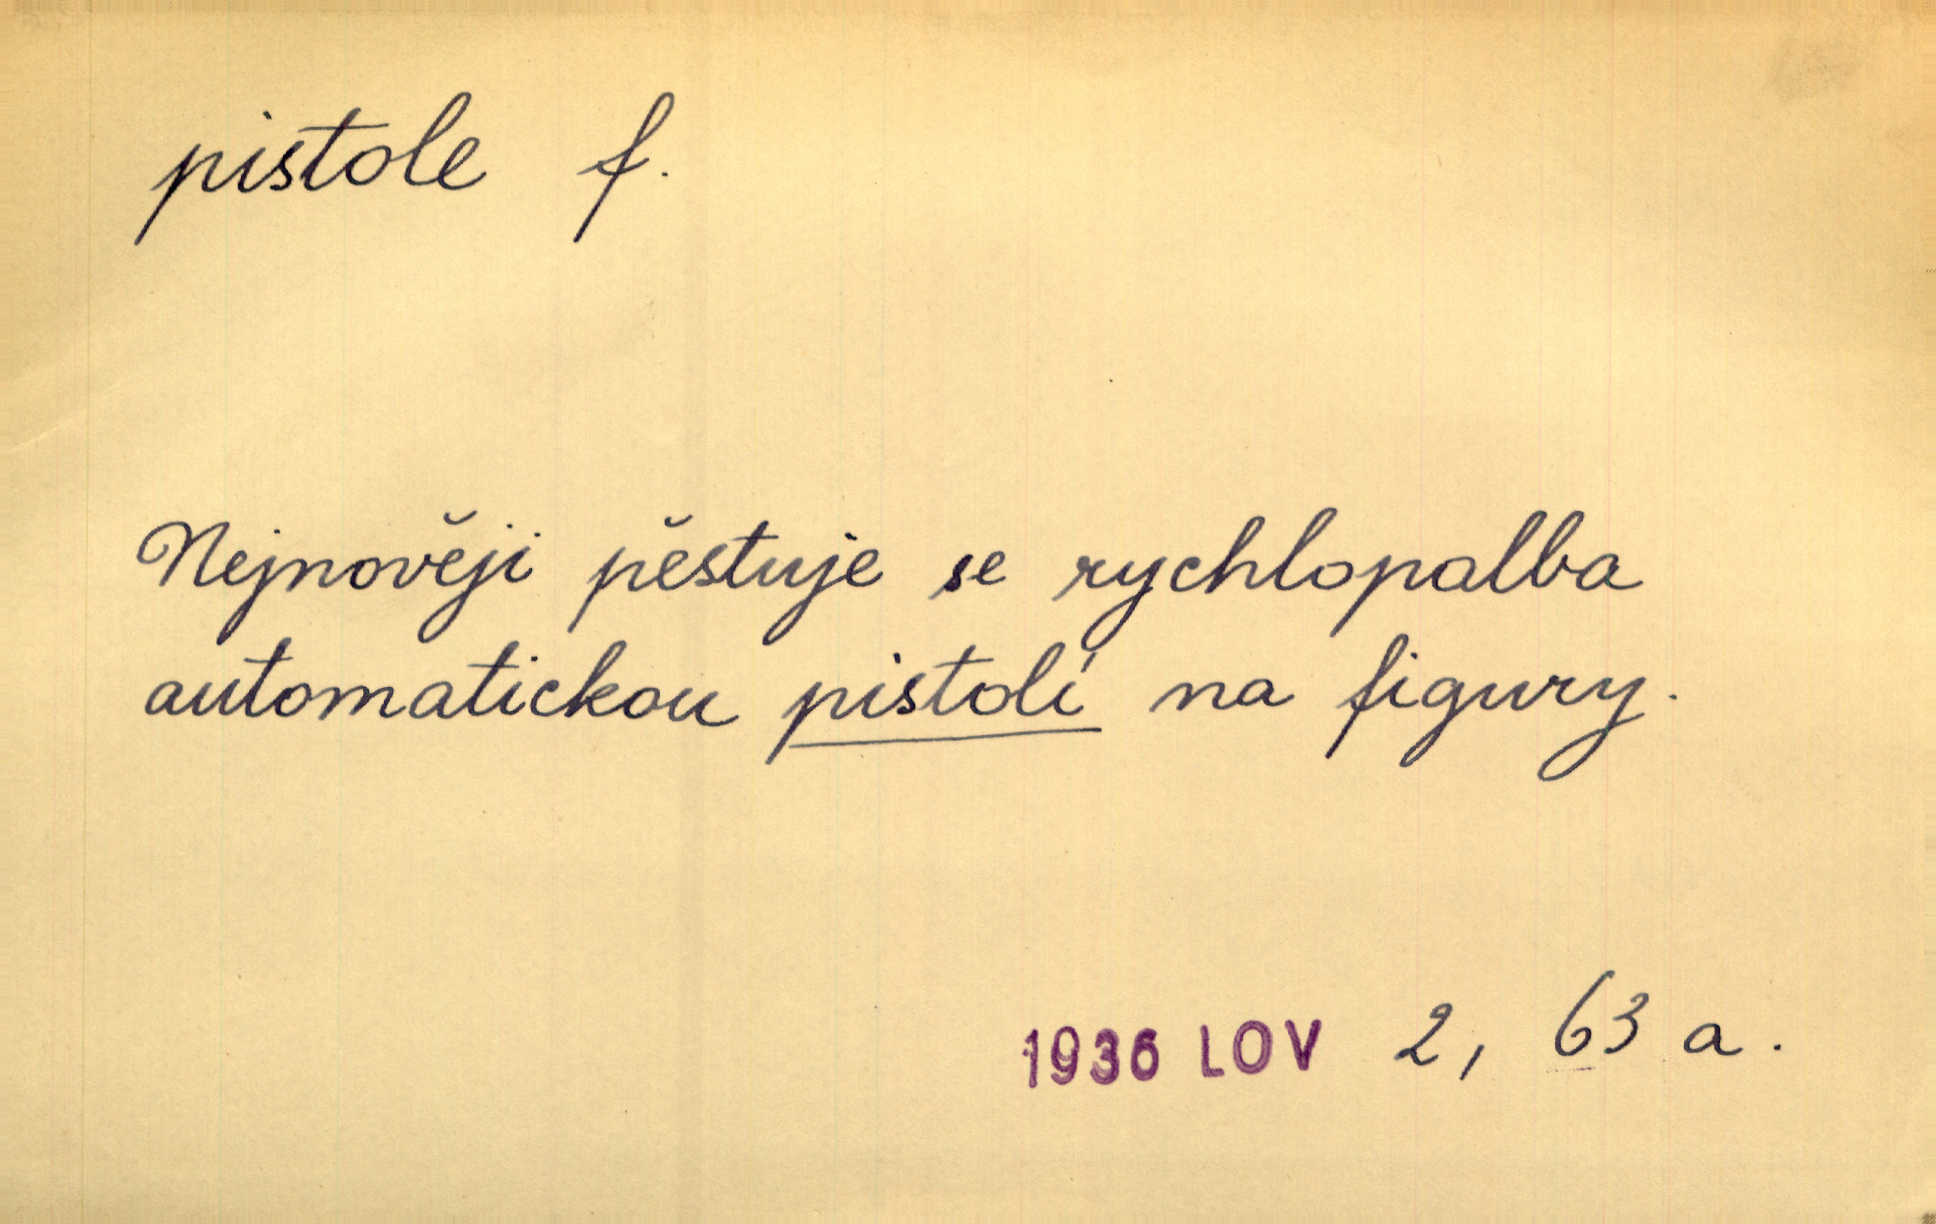 pistole f.
Nejnověji pěstuje se rychlopalba
automatickou pistolí na figury.
1936 LOV 2, 63 a.